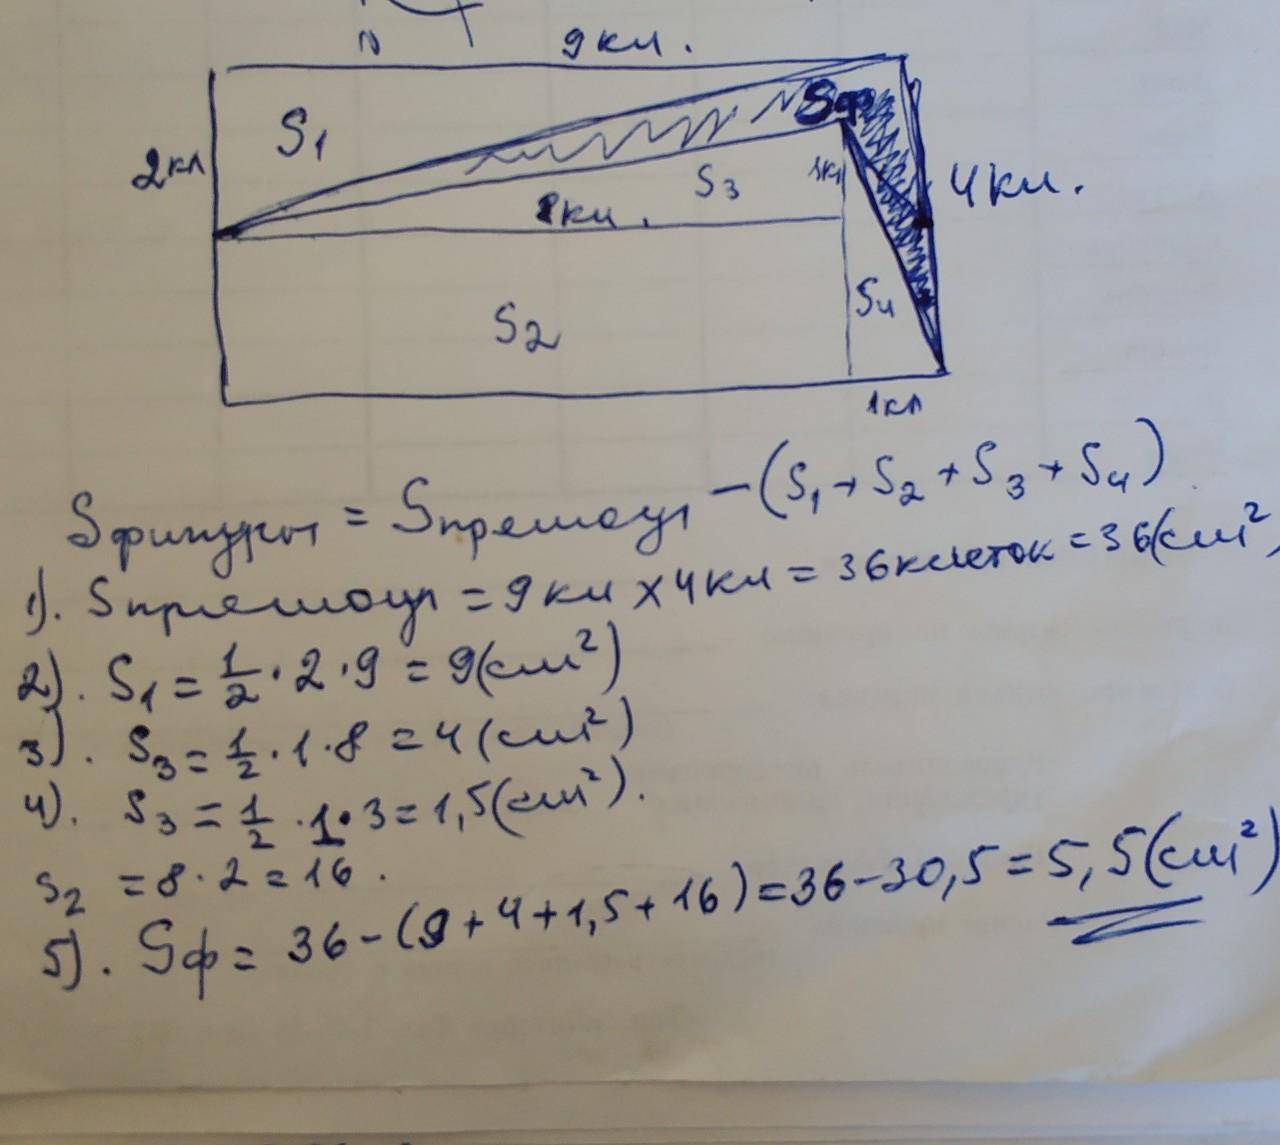 N
9 кл.
S1
Sф
2 кл
S3
1 кл
4 кл.
8 кл.
S2
S4
1 кл
Sфигуры = Sпрямоуг − (S1 + S2 + S3 + S4)
1). Sпрямоуг = 9 кл × 4 кл = 36 клеток = 36 (см²)
2). S1 = 1/2 · 2 · 9 = 9 (см²)
3). S3 = 1/2 · 1 · 8 = 4 (см²)
4). S3 = 1/2 · 1 · 3 = 1,5 (см²).
S2 = 8 · 2 = 16.
5). Sф = 36 − (9 + 4 + 1,5 + 16) = 36 − 30,5 = 5,5 (см²)